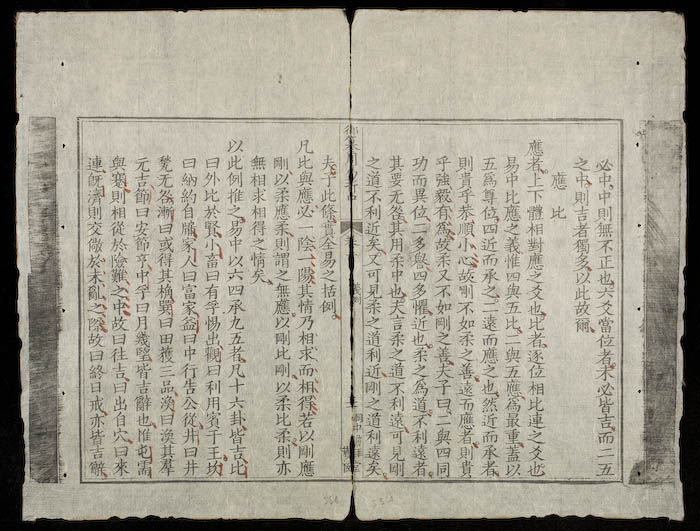 必中中則無不正也六爻當位者未必皆吉而二五
之中則吉者獨多以此故爾
應比
應者上下體相對應之爻也比者逐位相比連之爻也
易中比應之義惟四與五比二與五應為最重蓋以
五為尊位四近而承之二遠而應之也然近而承者
則貴乎恭順小心故剛不如柔之善遠而應者則貴
乎強毅有為故柔又不如剛之善夫子曰二與四同
功而異位二多譽四多懼近也柔之為道不利遠者
其要无咎其用柔中也夫言柔之道不利遠可見剛
之道不利近矣又可見柔之道利近剛之道利遠矣
夫子此條實全易之括例
凡比與應必一陰一陽其情乃相求而相得若以剛應
剛以柔應柔則謂之無應以剛比剛以柔比柔則亦
無相求相得之情矣
以此例推之易中以六四承九五者凡十六卦皆吉比
曰外比於賢小畜曰有孚惕出觀曰利用賓于王坎
曰納約自牖家人曰富家益曰中行告公從井曰井
甃无咎漸曰或得其桷巽曰田獲三品渙曰渙其羣
元吉節曰安節亨中孚曰月幾望皆吉辭也惟屯需
與蹇則相從於險難之中故曰往吉曰出自穴曰來
連既濟則交儆於未亂之際故曰終日戒亦皆吉辭